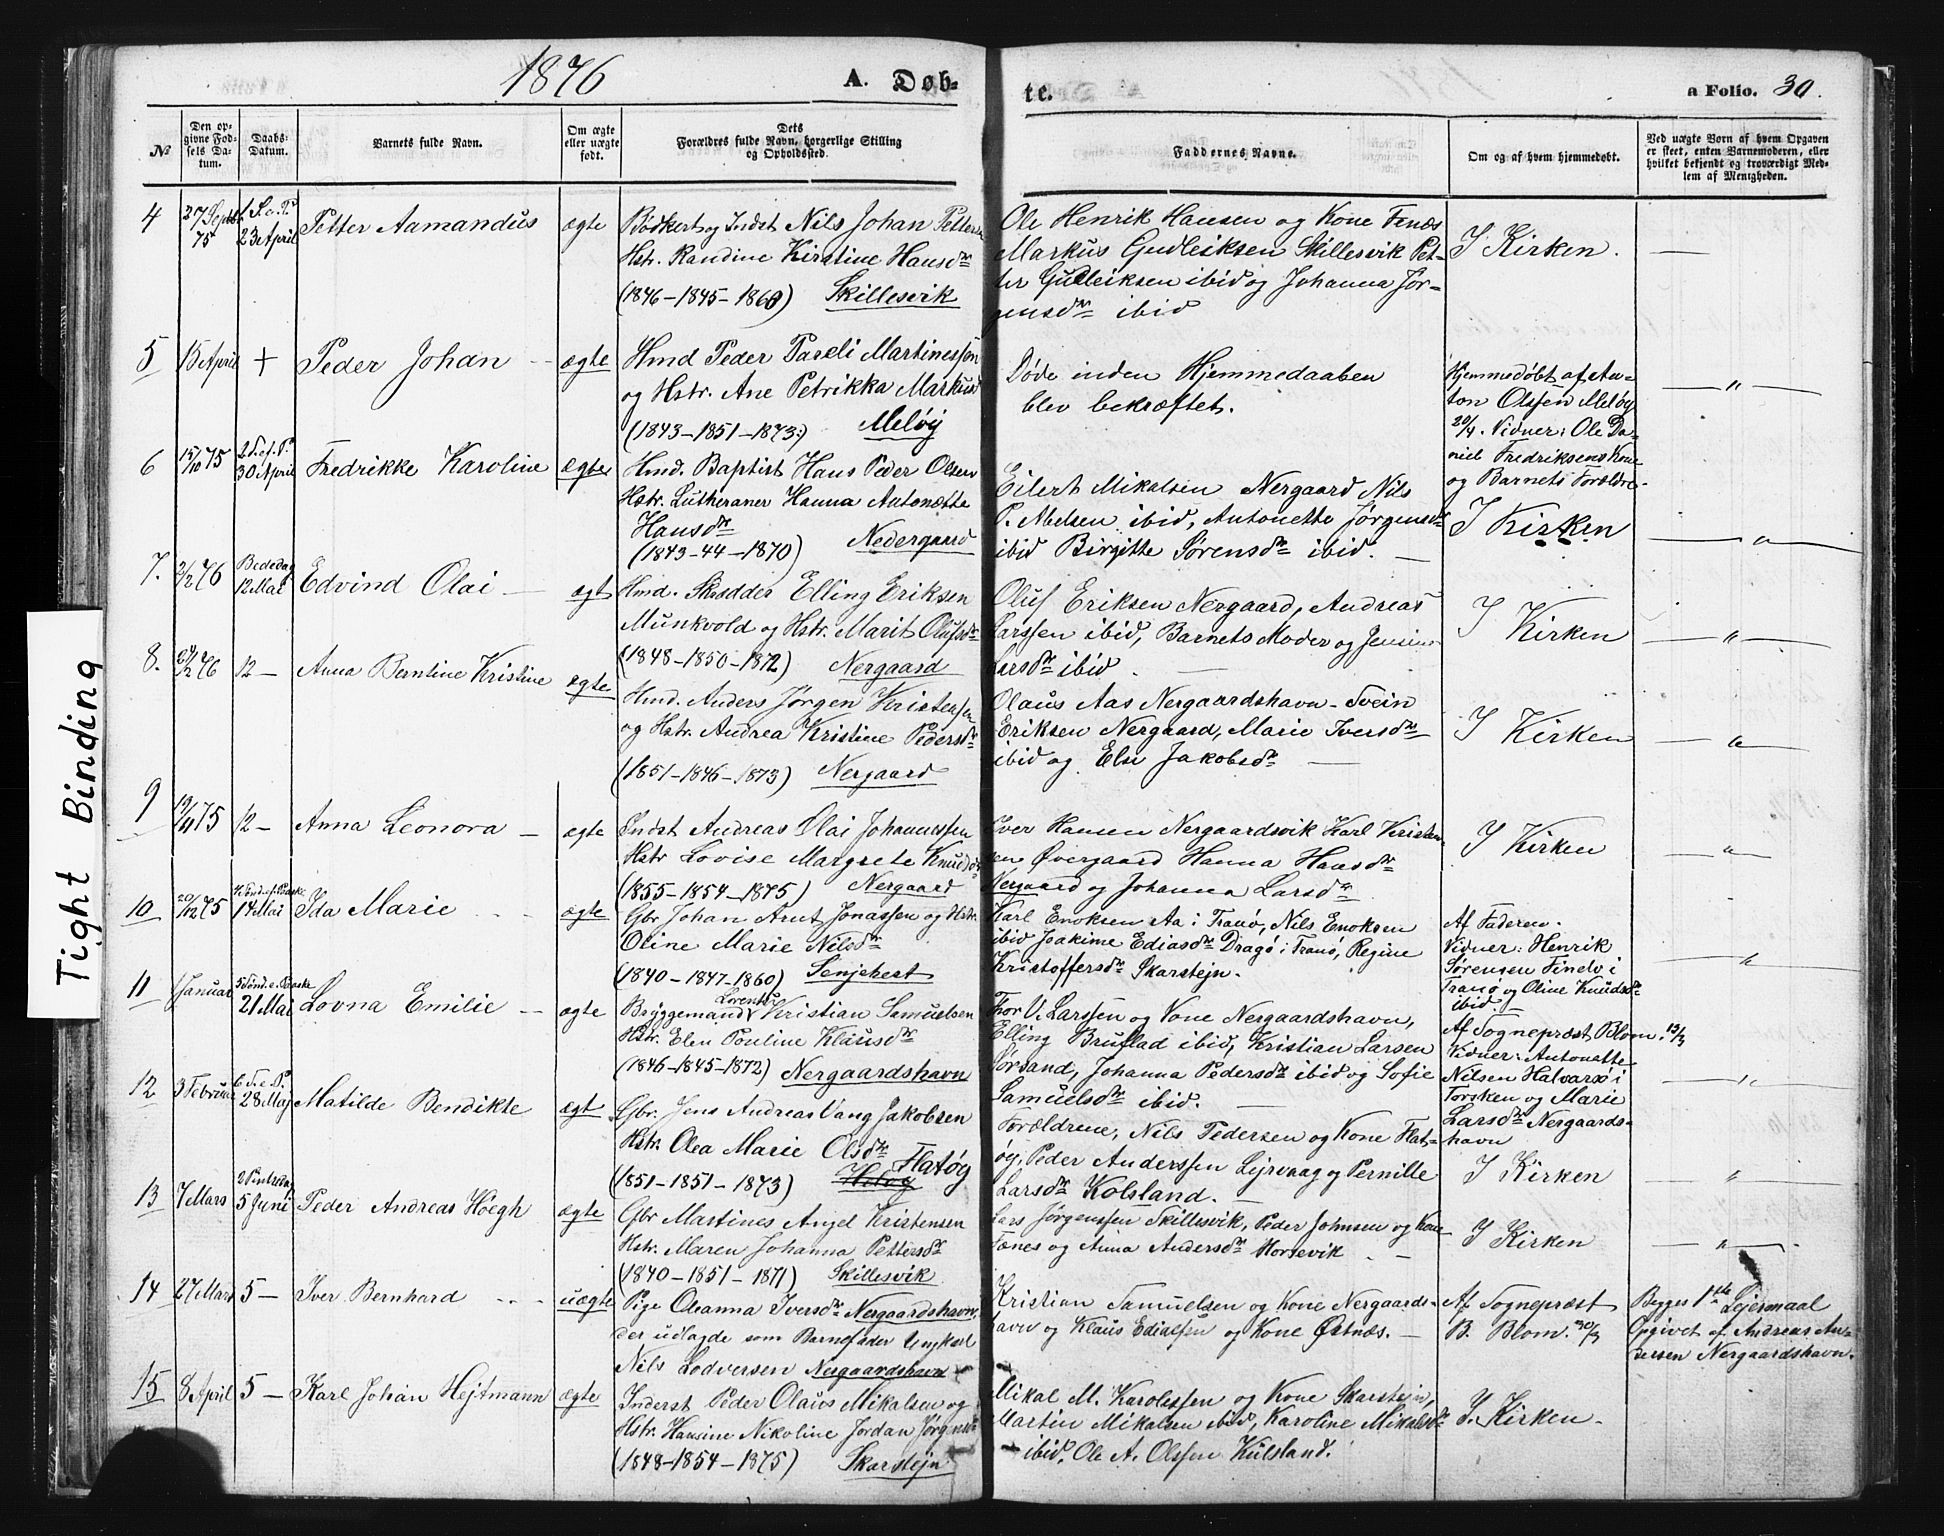 1876 A. Døb-
te. a Folio. 30.
№ Den op-
givne Fød-
sels Da-
tum. Daabs-
Datum. Barnets fulde Navn. Om ægte
eller uægte
født. Dets
Forældres fulde Navn, borgerlige Stilling
og Opholdssted. Faddernes Navne. Om og af hvem hjemmedøbt. Ved uægte Børn af hvem Opgaven
er skeet, enten Barnemoderen, eller
hvilket bekjendt og troværdigt Med-
lem af Menigheden.
4 27 Septbr 75 1 S. e. P. 23 April Petter Aamandus ægte
Bødker og Indst Nils Johan Pettersen
Hstr. Randine Kirstine Hansdtr
(1846-1845-1860) Skillesvik
Ole Henrik Hansen og Kone Fenæs
Markus Gudleiksen Skillesvik Pet-
ter Gudleiksen ibid og Johanna Jør-
gensdtr ibid
I Kirken. —
5 15 April + Peder Johan ægte
Hmd Peder Pareli Martinessøn
og Hstr. Ane Petrikka Markusd
(1843-1851-1873) Meløy
Døde inden Hjemmedaaben
blev bekræftet.
Hjemmedøbt af An-
ton Olssen Meløy
20/4. Vidner: Ole Da-
niel Fredriksens kone
og Barnets Forældre.
6 15/10 75 2 S. ef. P. 30 April Fredrikke Karoline ægte
Hmd. Baptist Hans Peder Olsen
Hstr. Lutheraner Hanna Antonette
Hansdtr
(1843-44-1870) Nedergaard
Eilert Mikalsen Nergaard Nils
P. Abelsen ibid, Antonette Jørgensdtr
ibid Birgitte Sørensdtr ibid.
I Kirken
7. 2/2 76 Bededag 12 Mai Edvind Olai ægt
Hmd. Skrædder Elling Eriksen
Munkvold og Hstr. Marit Olufsdtr
(1848-1850-1872) Nergaard
Oluf Eriksen Nergaard, Andreas
Larssen ibid, Barnets Moder og Jensine
Larsdtr ibid
I Kirken
8. 76 12 — Anna Berntine Kristine ægte
Hmd. Anders Jørgen Kristensen
og Hstr. Andrea Kristine Pedersdtr
(1851-1846-1873) Nergaard
Olaus Aas Nergaardshavn - Svein
Eriksen Nergaard, Marie Iversdtr
ibid og Else Jakobsdtr
I Kirken
9 19/11 75 12 — Anna Leonora ægte
Indst Andreas Olai Johannessen
Hstr Lovise Margrete Knudsd
(1855-1854-1875) Nergaard
Iver Hansen Nergaardsvik Karl Kristen-
sen Øvergaard Hanna Hansdtr
Nergaard og Johanna Larsdtr
I Kirken
10 20/12 75 4 Sønd. ef. Paaske 14 Mai Ida Marie ægte
Gbr. Johan Arnt Jonassen og Hstr.
Oline Marie Nilsdtr
(1840-1847-1860) Senjehest
Karl Enoksen Aa i Tranø, Nils Enoksen
ibid Joakime Ediasdtr Dragø i Tranø, Regine
Kristoffersdtr Skarstejn.
Af Faderen.
Vidner: Henrik
Sørensen Findv i
Tranø og Oline Knudsdtr
ibid.
11 Januar 5 Sønd. e. Paaske 21 Mai Lovna Emilie ægte
Bryggemand Lorents Kristian Samuelsen
Hstr. Elen Pouline Klausdtr
(1846-1845-1872) Nergaardshavn
Thor V. Larssen og Kone Nergaardshavn,
Elling Bruflad ibid, Kristian Larsen
Sørsand, Johanna Pedersdtr ibid og Sofie
Samuelsdtr ibid.
Af Sognepræst Blom. 13/3
Vidner: Antonette
Nilsen Halvarsø i
Torsken og Marie
Larsdtr Nergaards-
havn
12 3 Februar 6 S. e. P. 28 Maj Matilde Bendikte ægt
Gbr. Jens Andreas Vang Jakobsen
Hstr. Olea Marie Olsdtr
(1851-1851-1873) Flatøy
Forældrene, Nils Pedersen og Kone Flat-
øy, Peder Anderssen Lejrvaag og Pernille
Larsdtr Kolsland.
I Kirken
13 7 Mars 2 Pintsedag 5 Juni Peder Andreas Høegh ægte
Gbr Martines Angel Kristensen
Hstr. Maren Johanna Pettersdtr
(1840-1851-1871) Skillesvik
Lars Jørgenssen Skillesvik, Peder Johnsen og Kone
Fænes og Anna Andersdtr Horsevik
I Kirken
14 27 Mars 5 — Iver Bernhard uægte
Pige Oleanna Iversdtr Nergaardshavn,
der udlagde som Barnefader Ungkarl
Nils Lodversen Nergaardshavn
Kristian Samuelsen og Kone Nergaards-
havn og Klaus Edialsen og Kone Østnæs.
Af Sognepræst
B. Blom. 30/3
Begges 1ste Lejermaal
Opgivet af Andreas An-
dersen Nergaardshavn.
15 8 April 5 — Karl Johan Hejtmann ægte
Inderst Peder Olaus Mikalsen og
Hstr. Hansine Nikoline Jordan Jørgensd
(1848-1854-1875) Skarstejn
Mikal M. Karolssen og Kone Skarstejn,
Martin Mikalsen ibid, Karoline Mikalsdtr
ibid, Ole A. Olssen Kulsland.
I Kirken.
Tight Binding